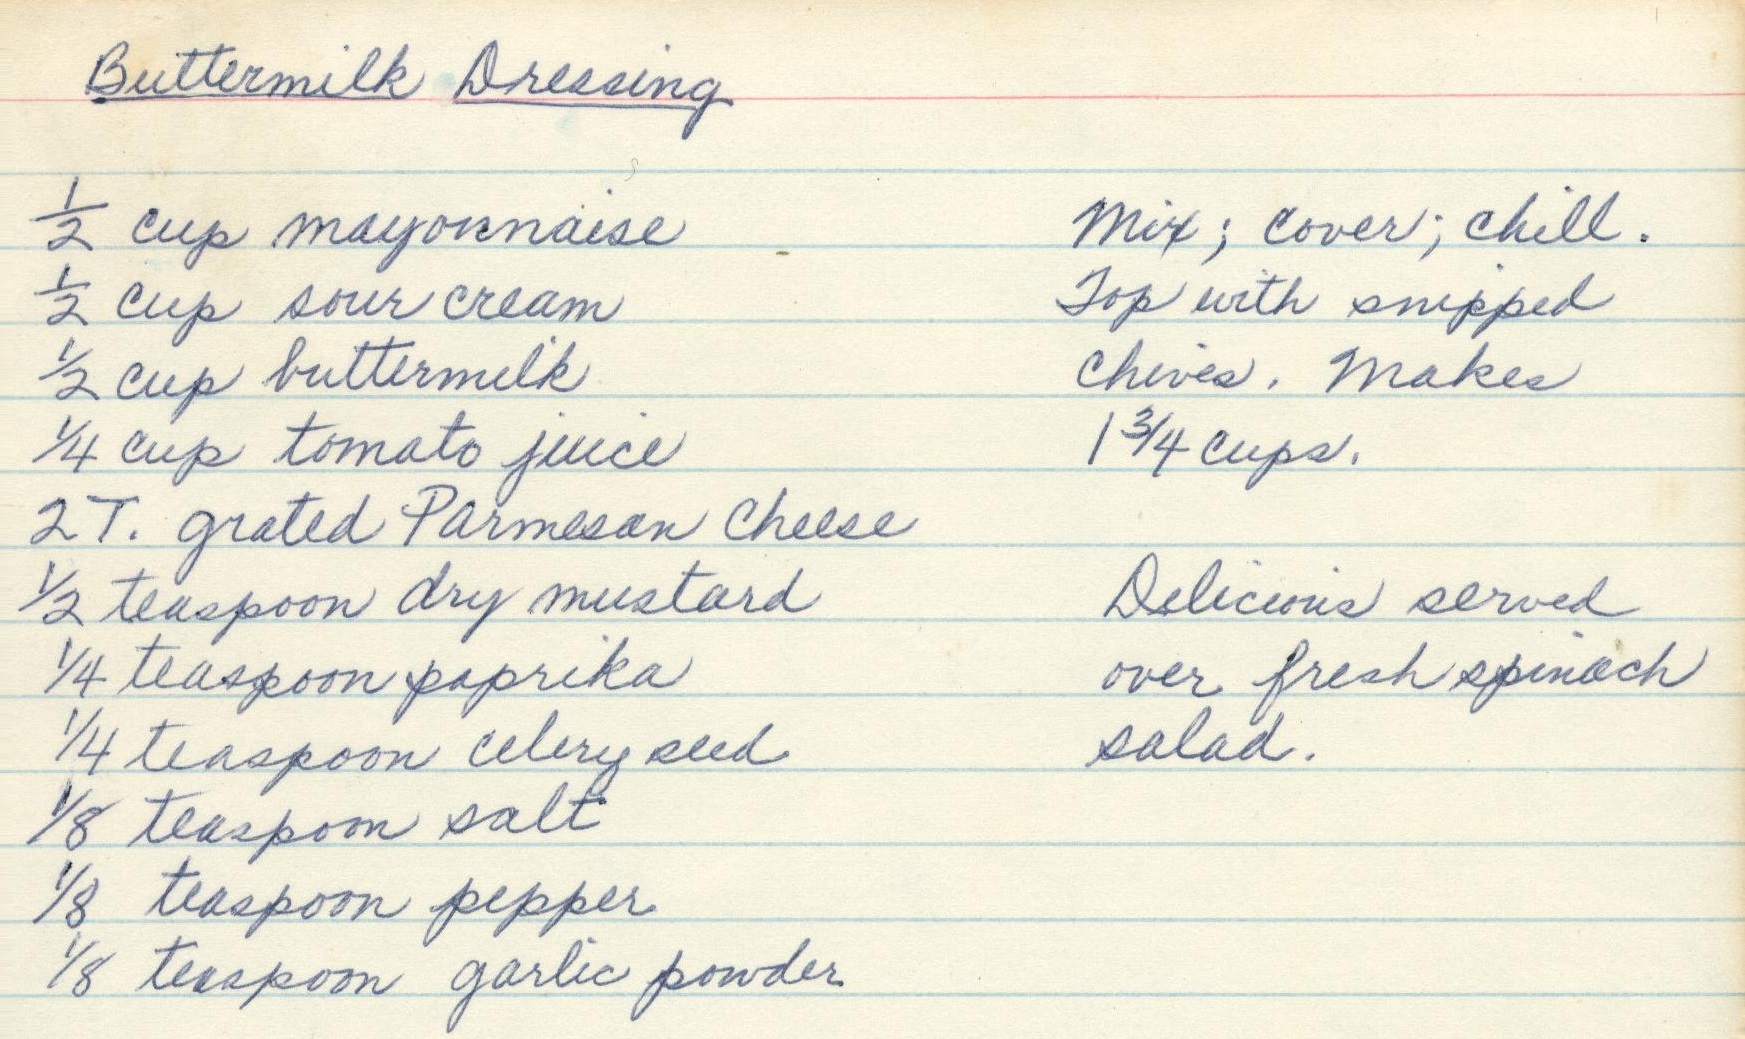 Buttermilk Dressing
½ cup mayonnaise
½ cup sour cream
½ cup buttermilk
¼ cup tomato juice
2 T. grated Parmesan Cheese
½ teaspoon dry mustard
¼ teaspoon paprika
¼ teaspoon celery seed
⅛ teaspoon salt
⅛ teaspoon pepper
⅛ teaspoon garlic powder
Mix; cover; chill.
Top with snipped
chives. Makes
1 ¾ cups.
Delicious served
over fresh spinach
salad.